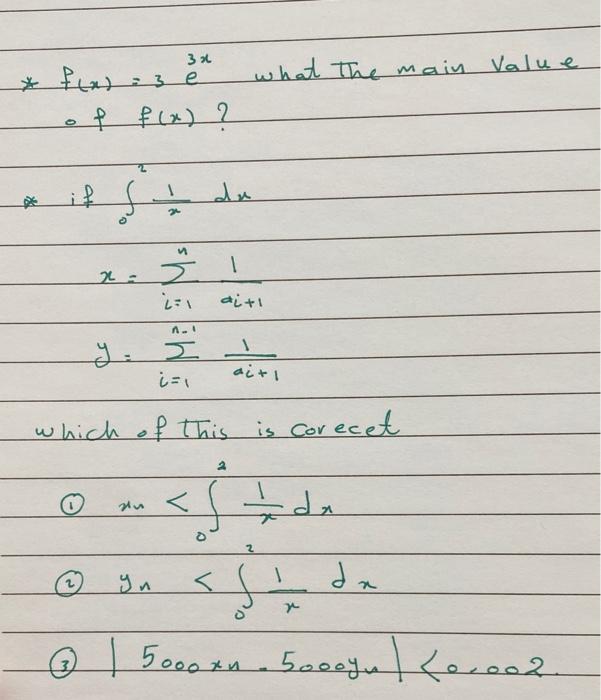 * f(x) = 3 e^{3x} what The main Value
of f(x) ?
* if ∫_0^2 1/x dx
x = ∑_{i=1}^{n} 1/(ai+1)
y = ∑_{i=1}^{n-1} 1/(ai+1)
which of this is corecet
① xn < ∫_0^2 1/x dx
② yn < ∫_0^2 1/x dx
③ | 5000xn - 5000yn | < 0.002.